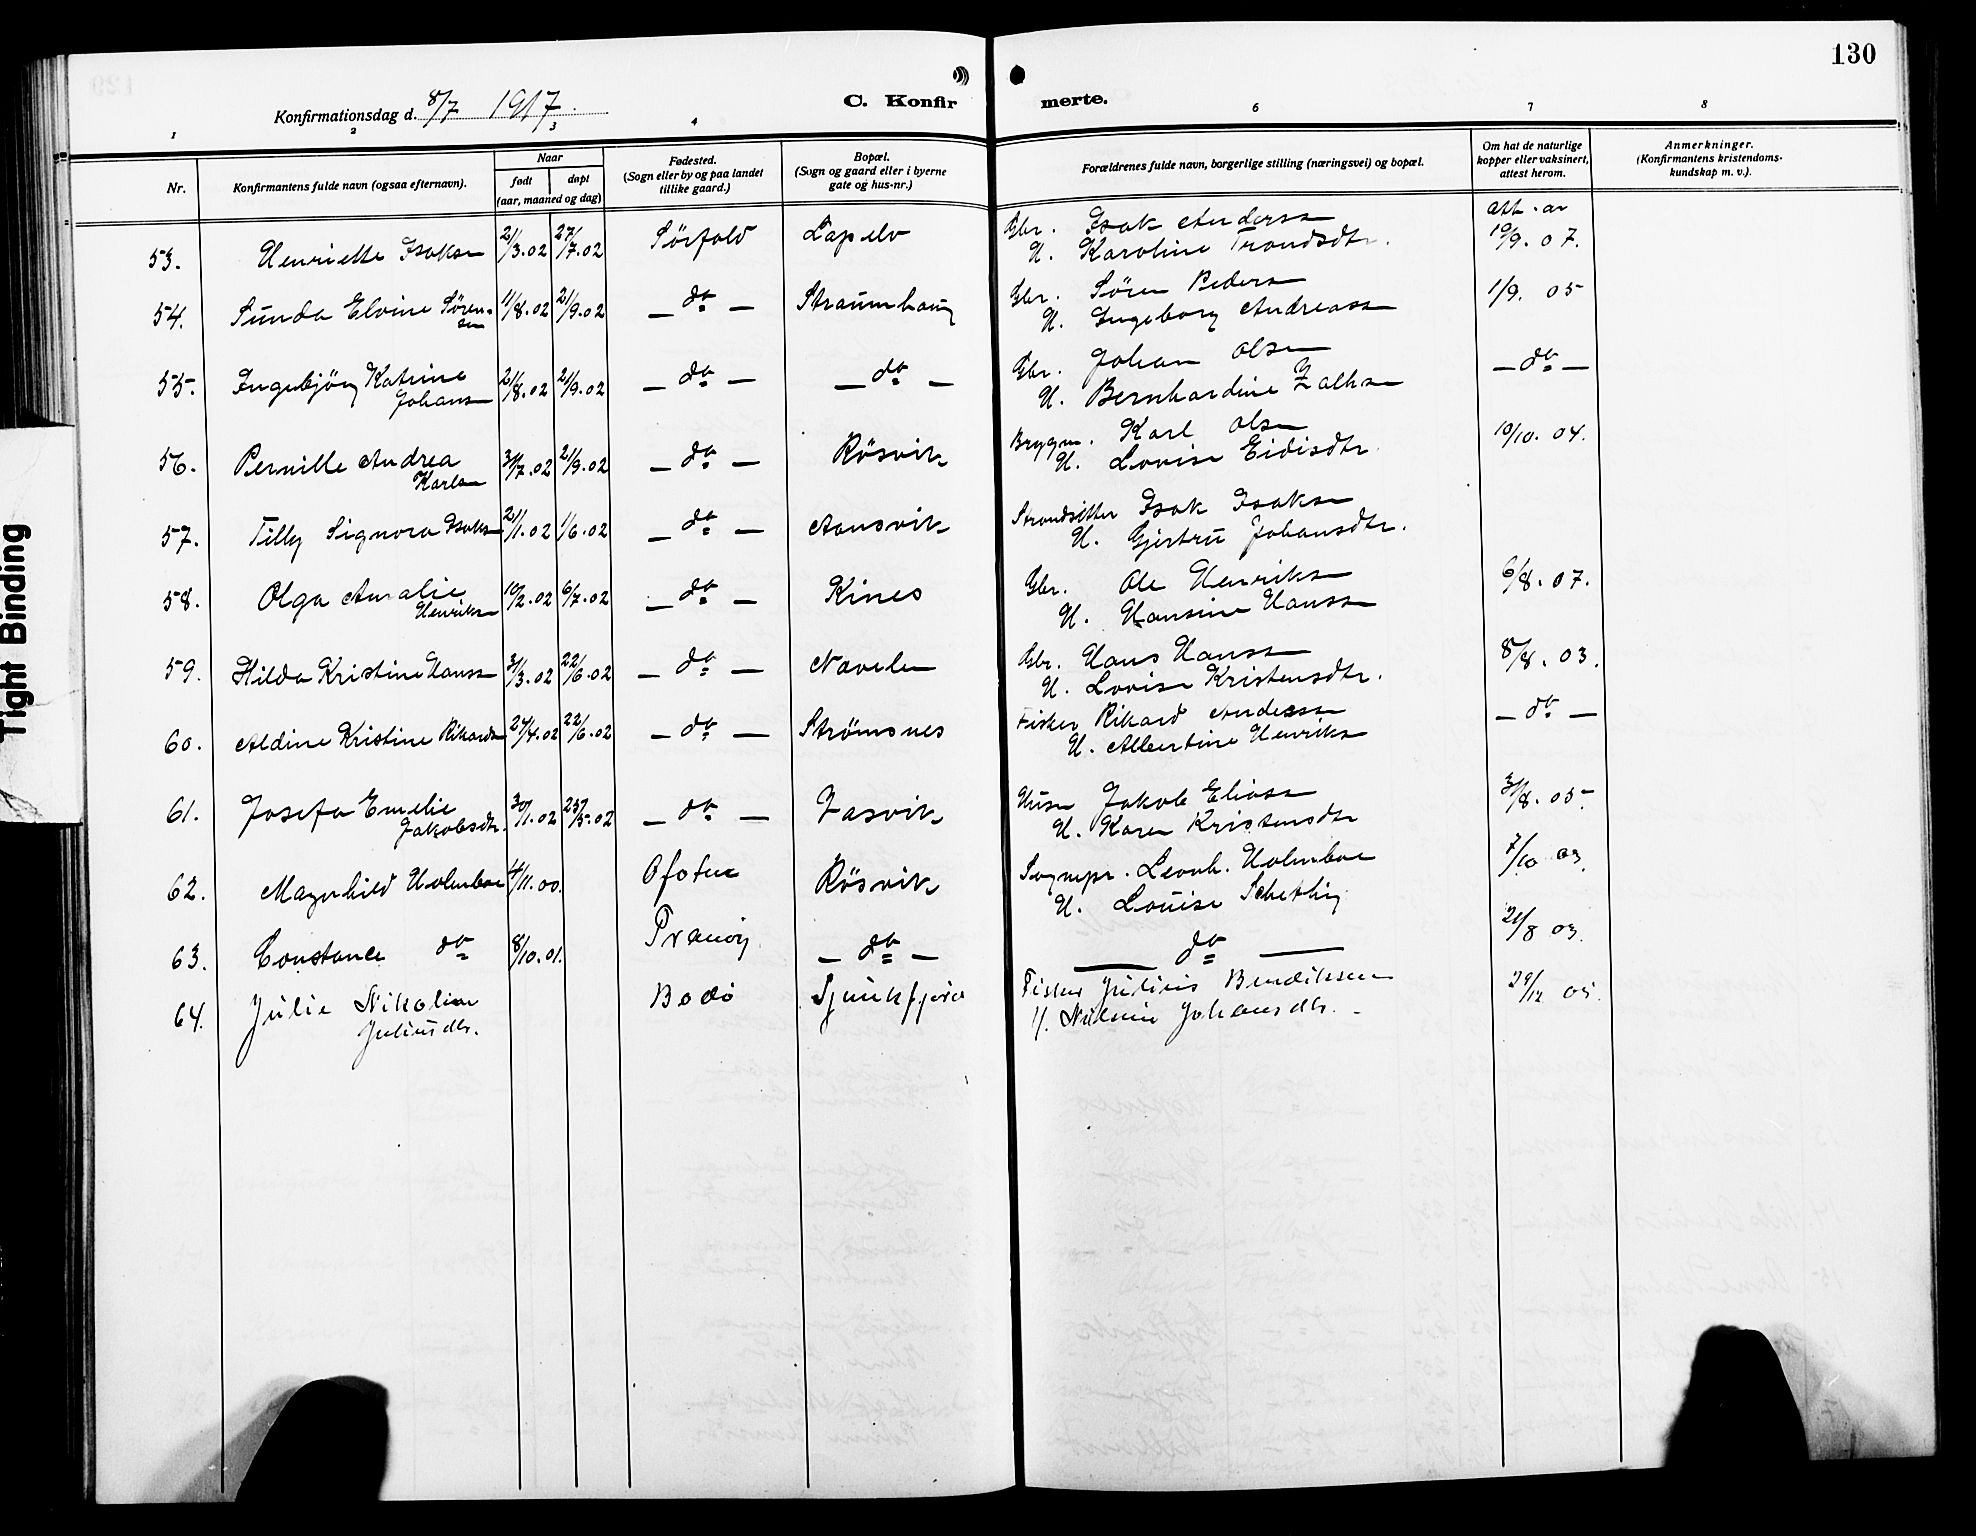 130
Konfirmationsdag d. 8/7 1917.
C. Konfirmerte.
1 2 3 4 6 7 8
Nr.
Konfirmantens fulde navn (ogsaa efternavn).
Naar
født døpt
(aar, maaned og dag)
Fødested.
(Sogn eller by og paa landet
tillike gaard.)
Bopæl.
(Sogn og gaard eller i byerne
gate og hus-nr.)
Forældrenes fulde navn, borgerlige stilling (næringsvei) og bopæl.
Om hat de naturlige
kopper eller vaksinert,
attest herom.
Anmerkninger.
(Konfirmantens kristendoms-
kundskap m. v.).
53. Henriette Isaksen 2/3.02 27/7.02 Sörfold Lapelv Gbr. Isak Anderssen att. av
H. Karoline Trondsdtr. 10/9.07.
54. Sunda Elvine Sören- 11/8.02 21/9.02 – do – Straumhaug Gbr. Sören Pedersen 1/9. 05
sen H. Ingeborg Andreassen
55. Ingebjörg Katrine 21/8.02 21/9.02 – do – – do – Gbr. Johan Olsen – do –
Johansen H. Bernhardine
56. Pernille Andrea 31/7.02 21/9.02 – do – Rösvik Karl Olsen 10/10.04.
Karlsen H. Lovise Eidisdtr.
57. Tilly Signora Isaksen 21/1.02 1/6.02 – do – Aansvik Strandsitter Isak Isaksen
H. Gjertru Johansdtr.
58. Olga Amalie 10/2.02 6/7.02 – do – Kines Gbr. Ole Henriksen 6/8.07.
Henriksen H. Hansine Hanssen
59. Hilda Kristine Hanssen 31/3.02 22/6.02 – do – Navelen Gbr. Hans Hanssen 8/8.03.
H. Lovise Kristensdtr.
60. Aldine Kristine Rikardsen 24/4.02 22/6.02 – do – Strømsnes Fisker Rikard Anderssen – do –
H. Albertine Henriksen
61. Josefa Emelie 30/1.02 25/5.02 – do – Husm Jakob Eliassen 31/8.05.
Jakobsdtr. H. Karen Kristensdtr
62. Magnhild Holmboe 4/11.00. Ofoten Rösvik Sognepr. Leonh. Holmboe 7/10 03.
H. Louise Schetlig
63. Constance do 8/10.01. Tranöy – do – – do – 21/8 03.
64. Julie Nikoline Bodö Fisker Julius Bendiksen 29/12 05.
Juliusdtr. H. Johansdtr.
Tight Binding